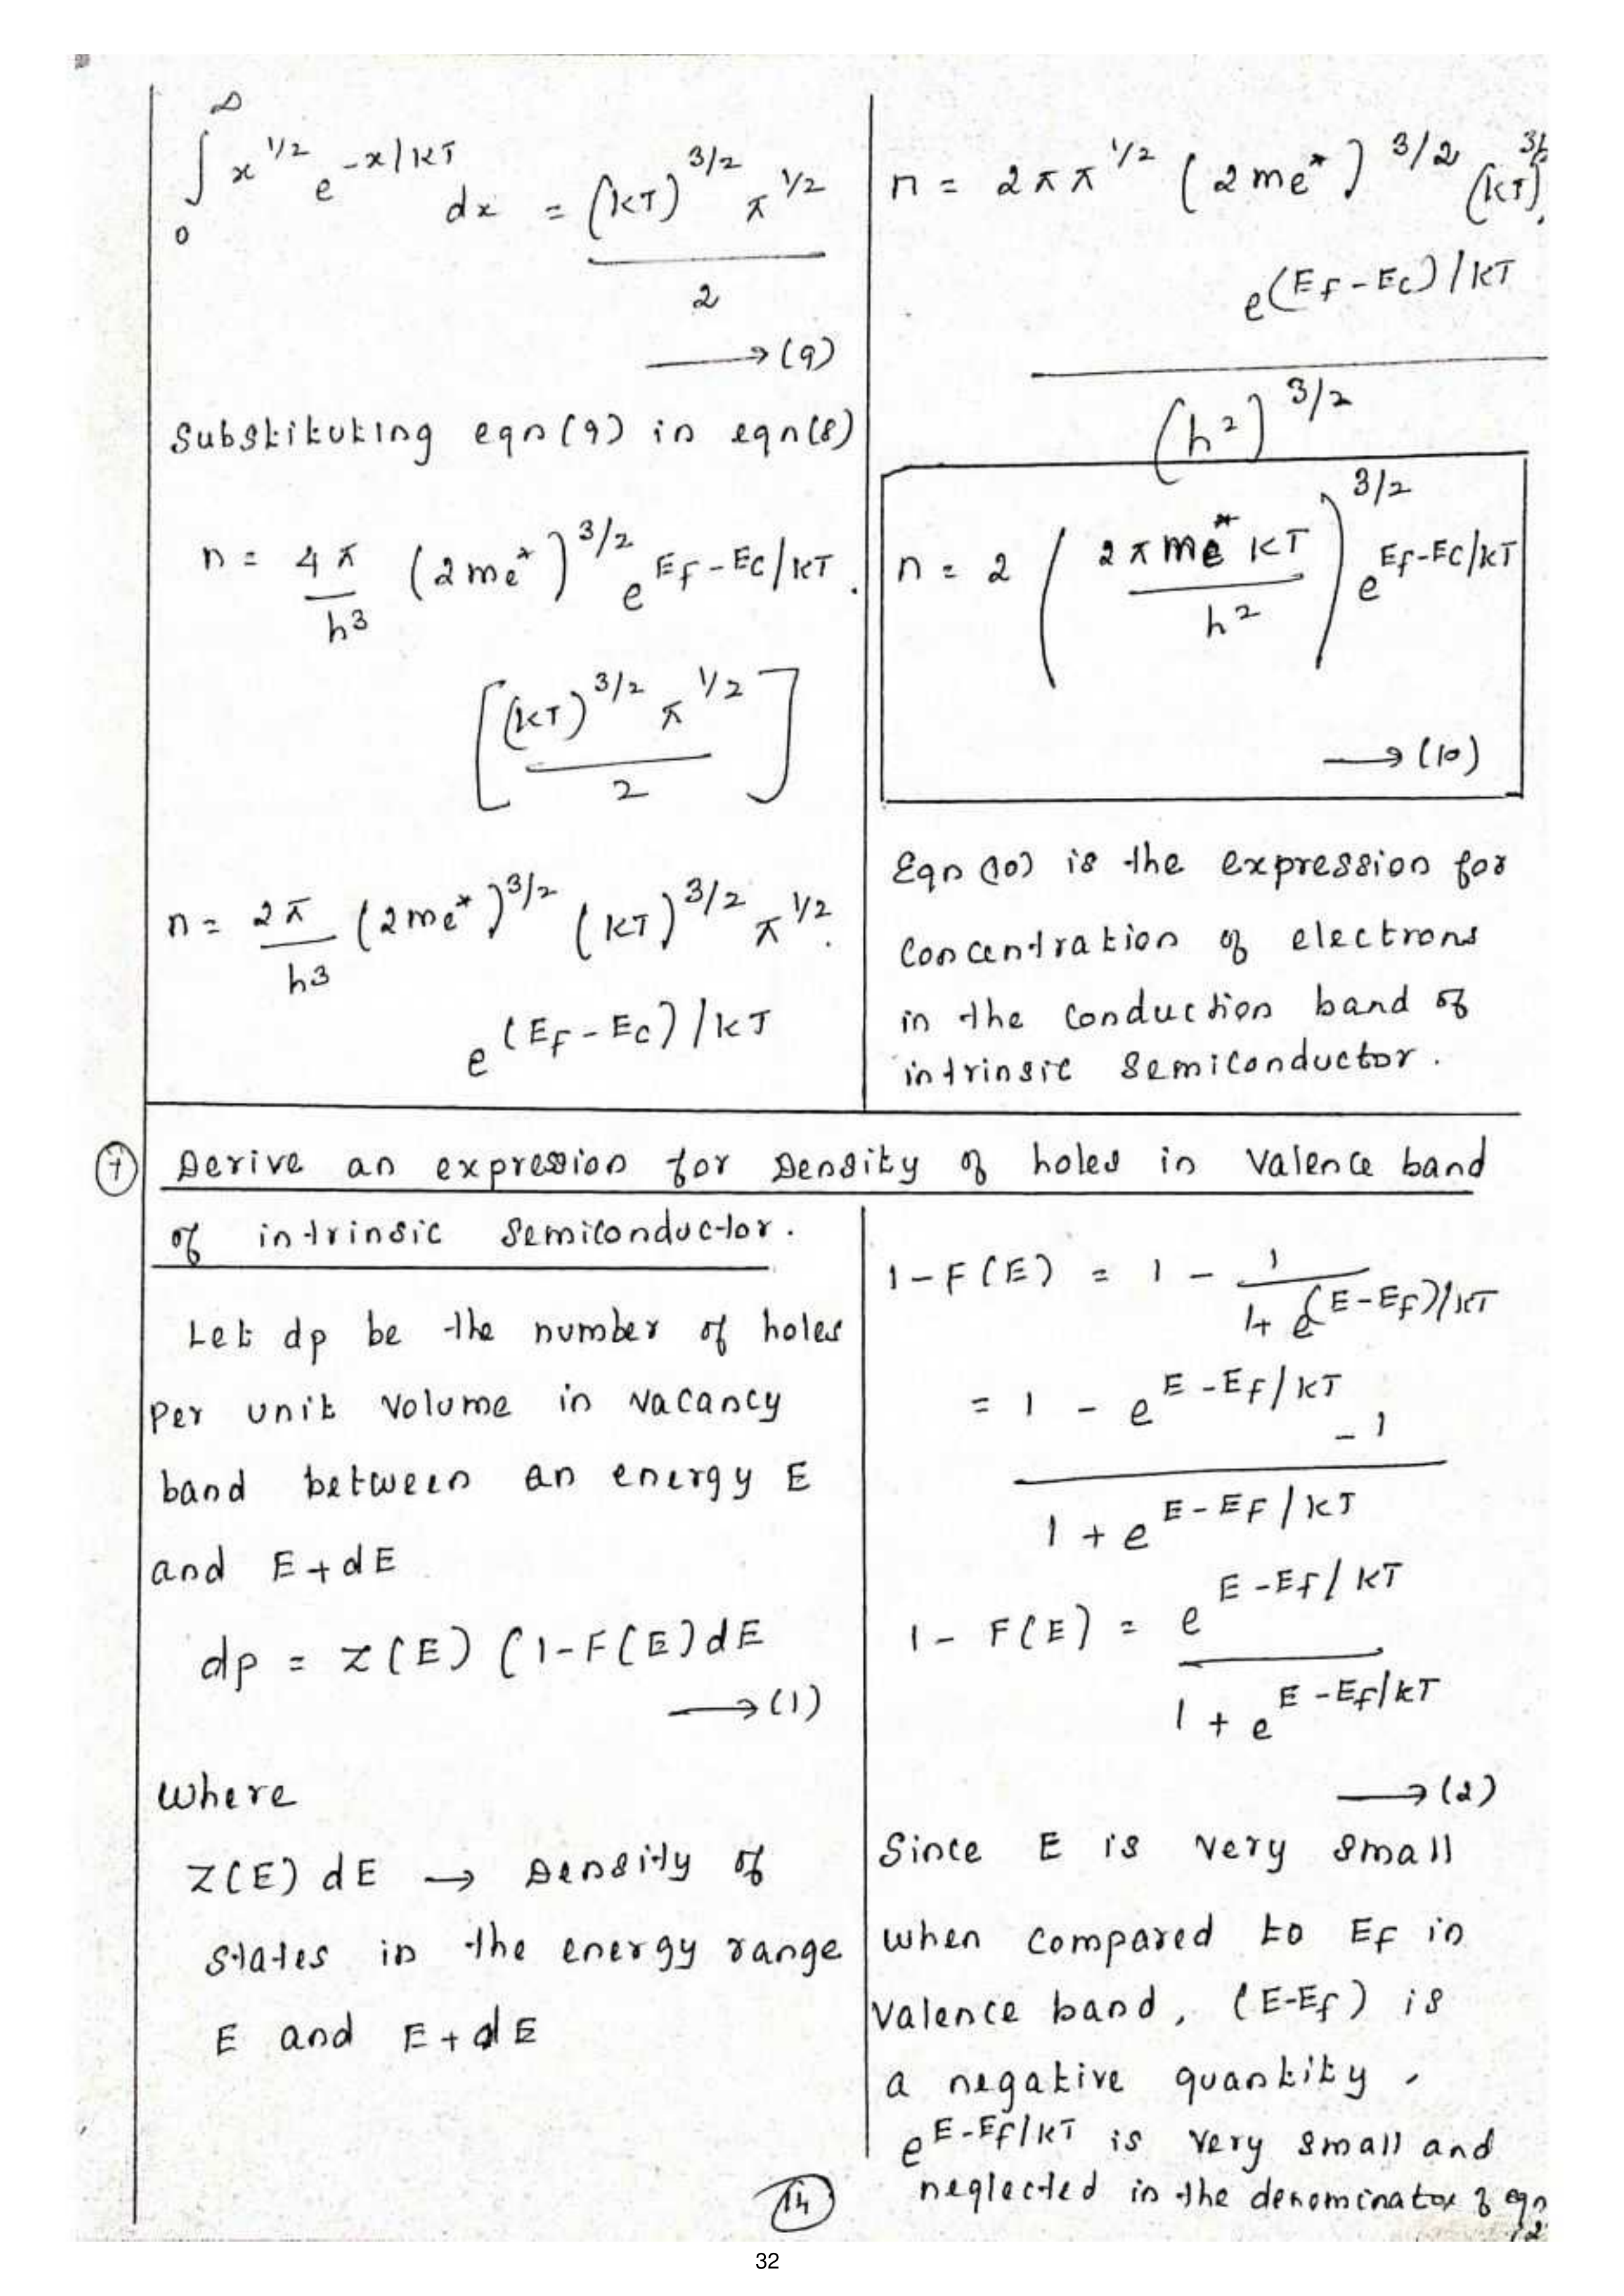 ∫₀^∞ x^1/2 e^-x/kT dx = (kT)^3/2 π^1/2 / 2
→ (9)
Substituting eqn (9) in eqn (8)
n = 4π/h³ (2me*)^3/2 e^Ef-Ec/kT .
[(kT)^3/2 π^1/2 / 2]
n = 2π/h³ (2me*)^3/2 (kT)^3/2 π^1/2 .
e^(Ef-Ec)/kT
n = 2ππ^1/2 (2me*)^3/2 (kT)^3/2 .
e^(Ef-Ec)/kT
(h²)^3/2
n = 2 (2πme*kT / h²)^3/2 e^Ef-Ec/kT
→ (10)
Eqn (10) is the expression for
concentration of electrons
in the conduction band of
intrinsic semiconductor.
7 Derive an expression for Density of holes in Valence band
of intrinsic semiconductor.
Let dp be the number of holes
per unit volume in vacancy
band between an energy E
and E+dE
dp = Z(E) (1-F(E) dE
→ (1)
Where
Z(E) dE → Density of
states in the energy range
E and E+dE
1-F(E) = 1 - 1 / 1+ e^(E-Ef)/kT
= 1 - e^E-Ef/kT - 1
1 + e^E-EF/kT
1 - F(E) = e^E-Ef/kT
1 + e^E-Ef/kT
→ (2)
Since E is very small
when compared to EF in
Valence band, (E-Ef) is
a negative quantity,
e^E-Ef/kT is very small and
neglected in the denominator of eqn
14
32